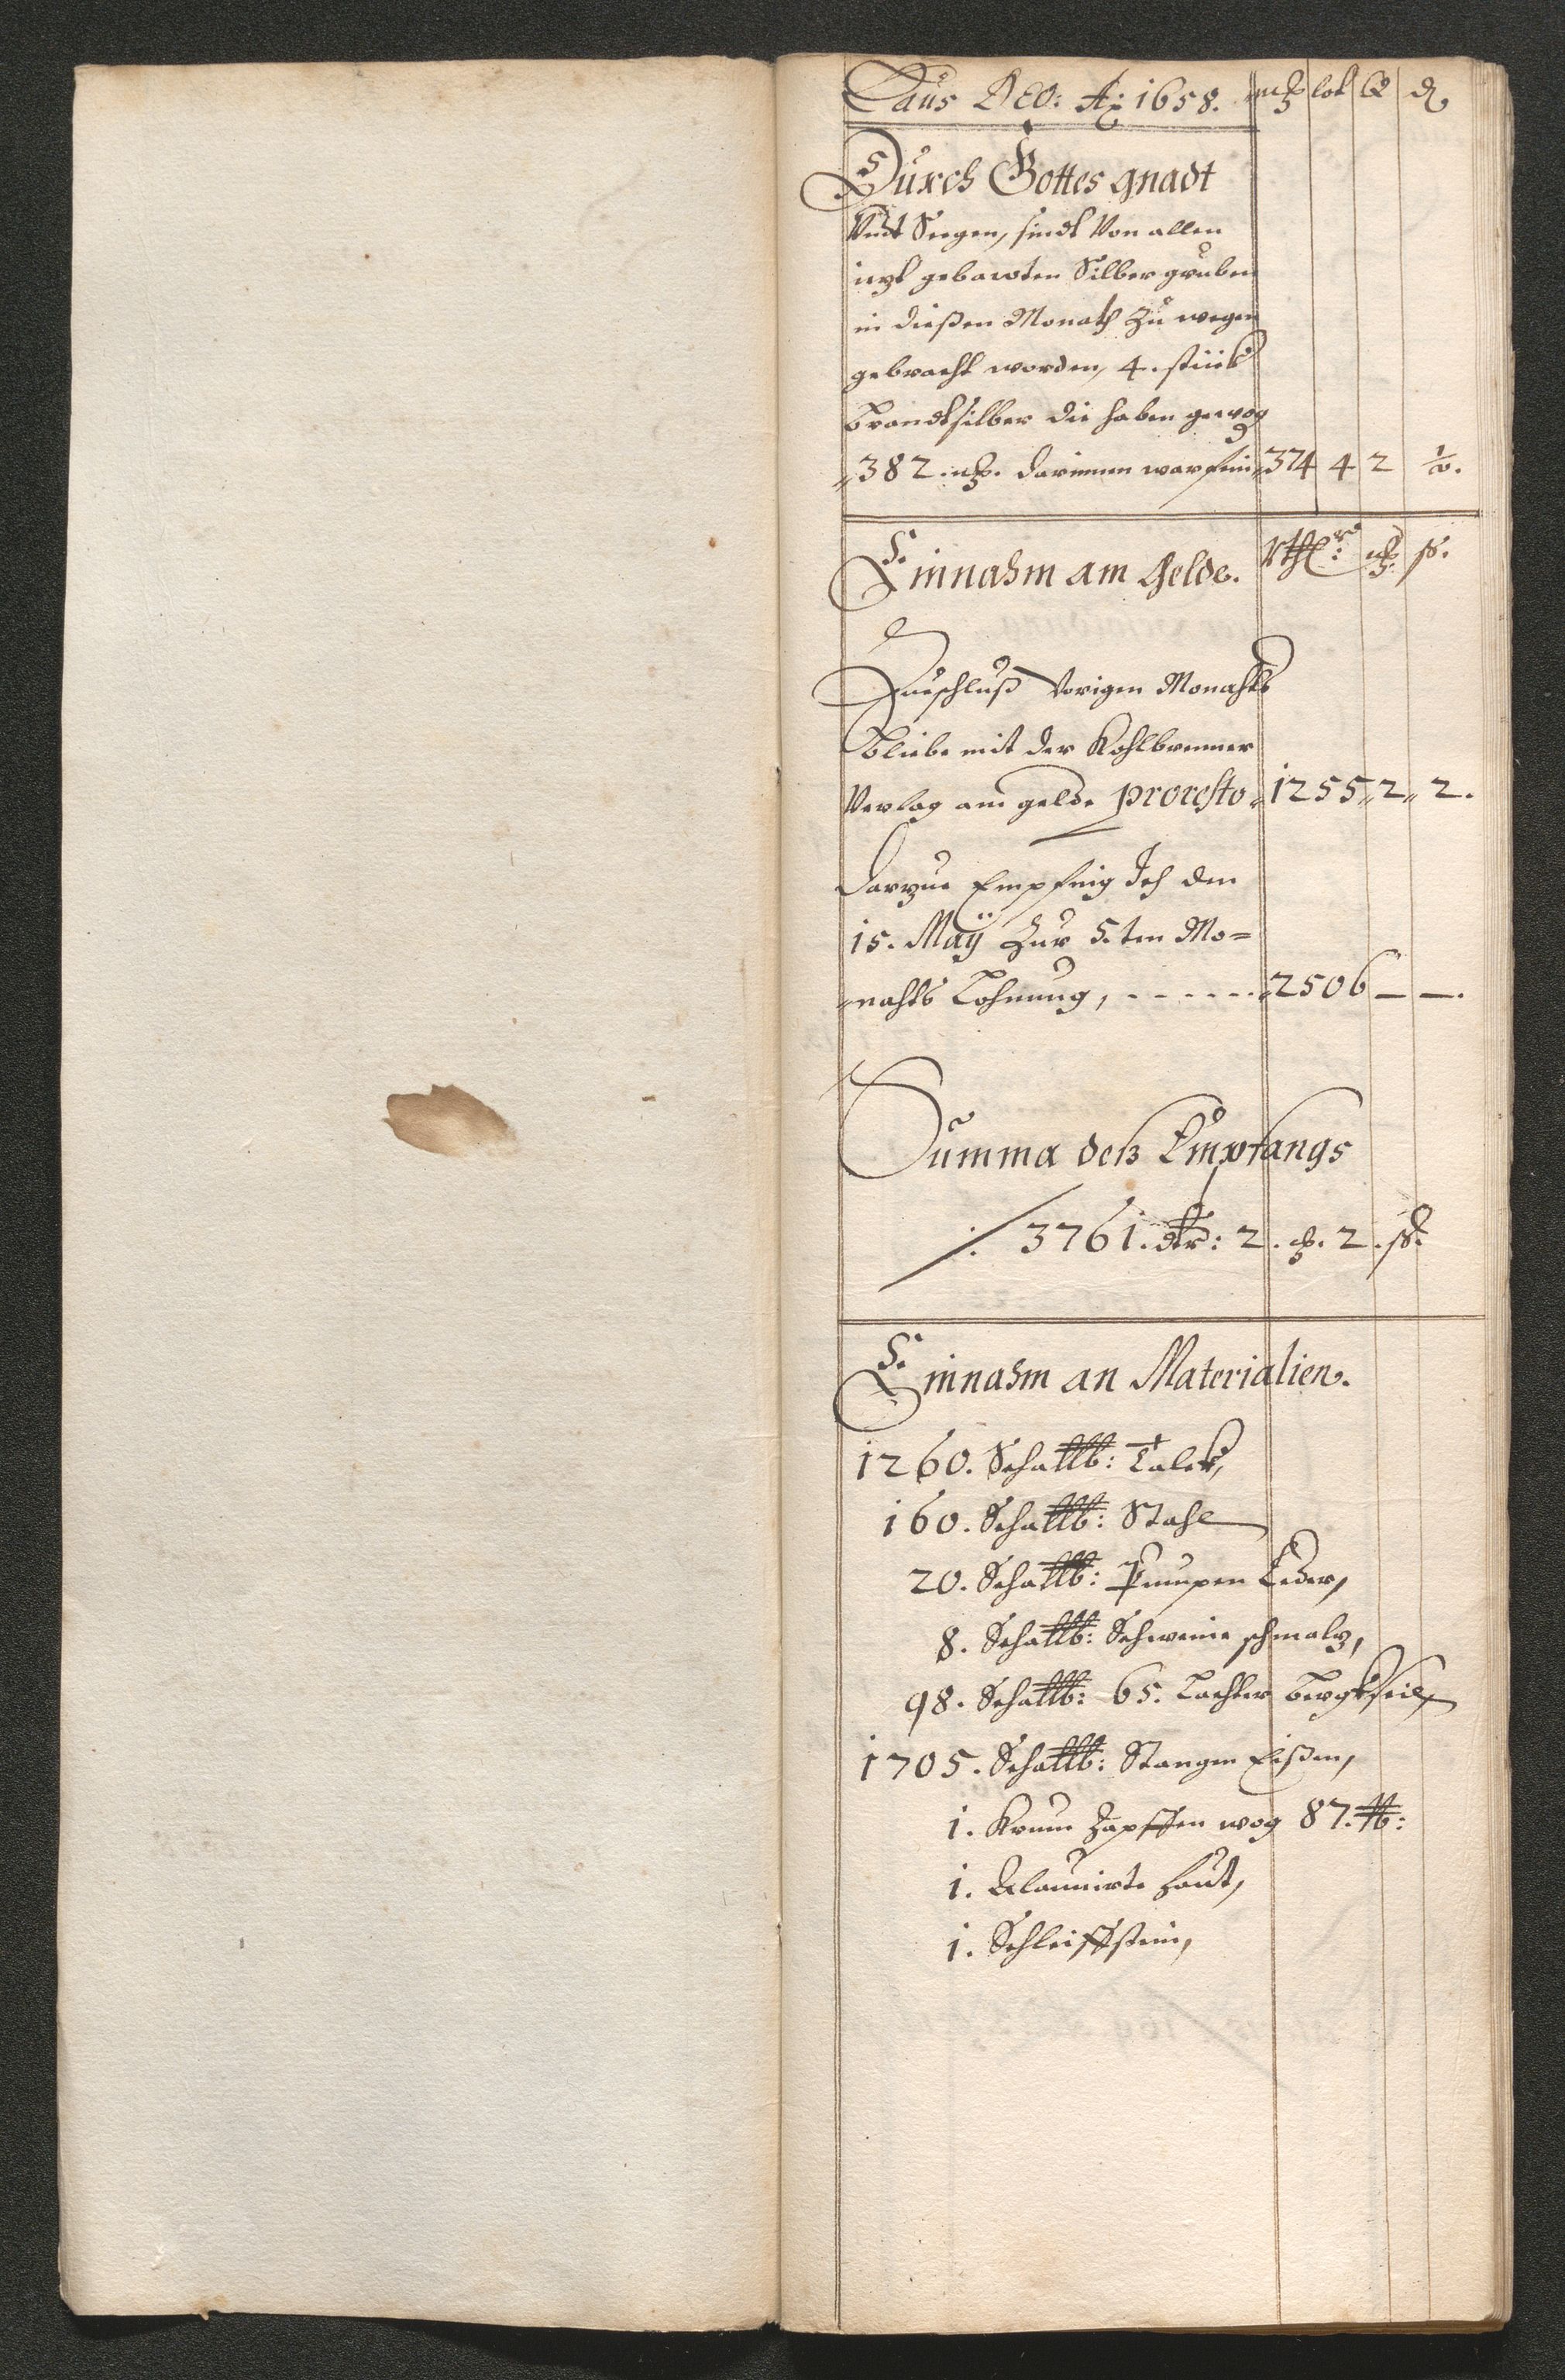 Laus DEO: Aõ: 1658. mk lot Q ₰
Durch Gottes gnadt
Undt Seegen, sindt Von allen
itzt gebawten Silber gruben
in dießen Monath Zu wegen
gebracht worden, 4. stück
Brandtsilber die haben gewog
382. mk. darinnen war fein 374 4 2 ½.
Einnahm am Gelde. Rthlr: mk ß.
Zueschluß Vorigen Monahts
Bliebe mit der Kohlbrenner
Verlag am gelde prоresto 1255 2 2.
Darzue Empfing Ich den
15. Maÿ Zur 5.ten Mo=
nahts Lohnung, - - - - - - 2506 — —.
Summa deß Empfangs
3761. dlr: 2. mk. 2. ß.
Einnahm an Materialien.
1260. Schallb: Talck,
160. Schallb: Stahl
20. Schallb: Pumpen Leder,
8. Schallb: Schweine schmalz,
98. Schallb: 65. Lachter bergkseil,
1705. Schallb: Stangen Eißen,
1. Krum Zapffen wog 87. lb:
1. Alaunirte haut,
1. Schleiffstein,